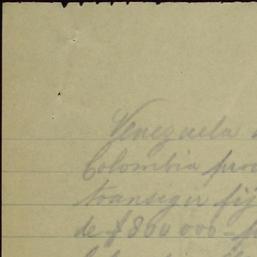 Venezuela
Colombia pro
transigir fij
de $800 000 -